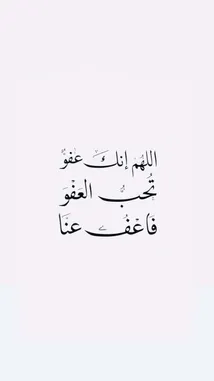 اللهم إنك عفوٌ
تُحب العَفْوَ
فَاعْفُ عنَا